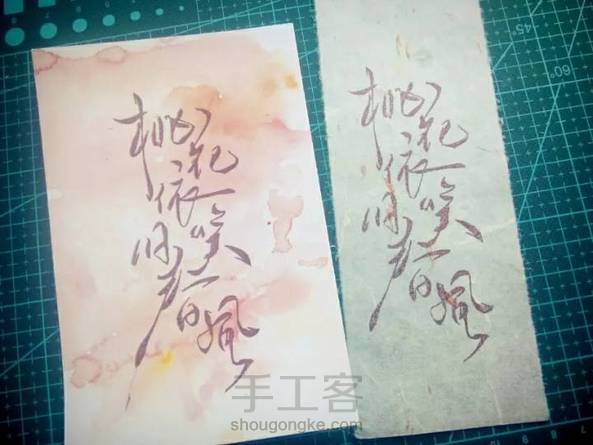 桃花依旧笑春風
桃花依旧笑春風
45°
60°
手工客
shougongke.com